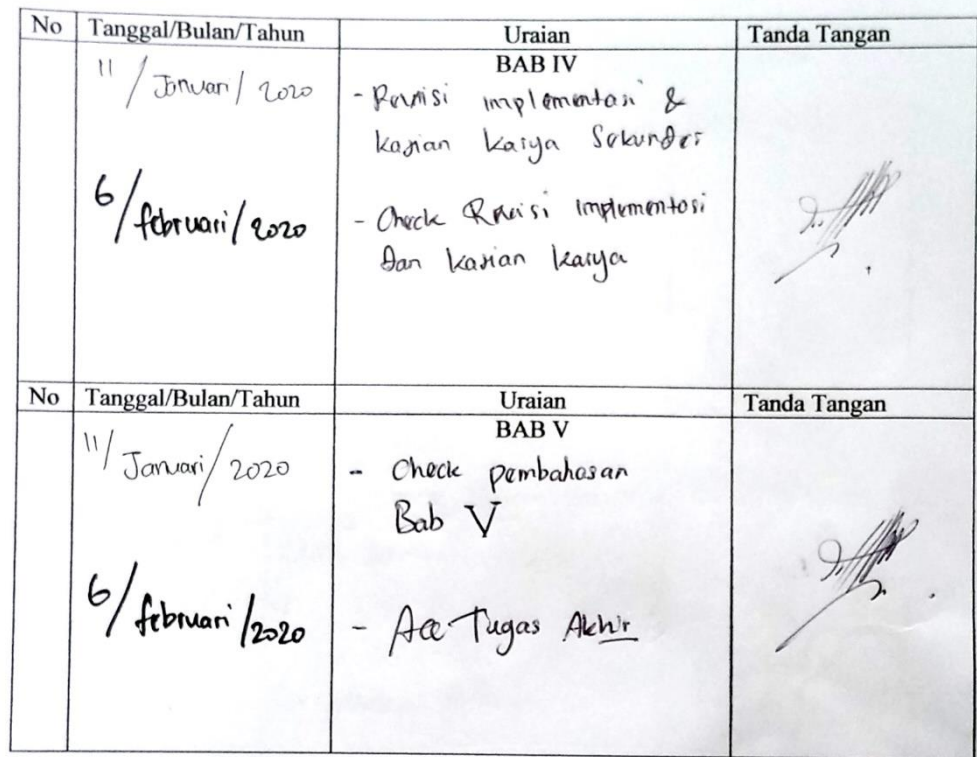 No Tanggal/Bulan/Tahun Uraian Tanda Tangan
BAB IV
11/Januari/2020 - Revisi implementasi &
kajian karya Sekunder
6/februari/2020 - Check Revisi implementasi
dan kajian karya
No Tanggal/Bulan/Tahun Uraian Tanda Tangan
BAB V
11/Januari/2020 - Check pembahasan
Bab V
6/februari/2020 - Acc Tugas Akhir